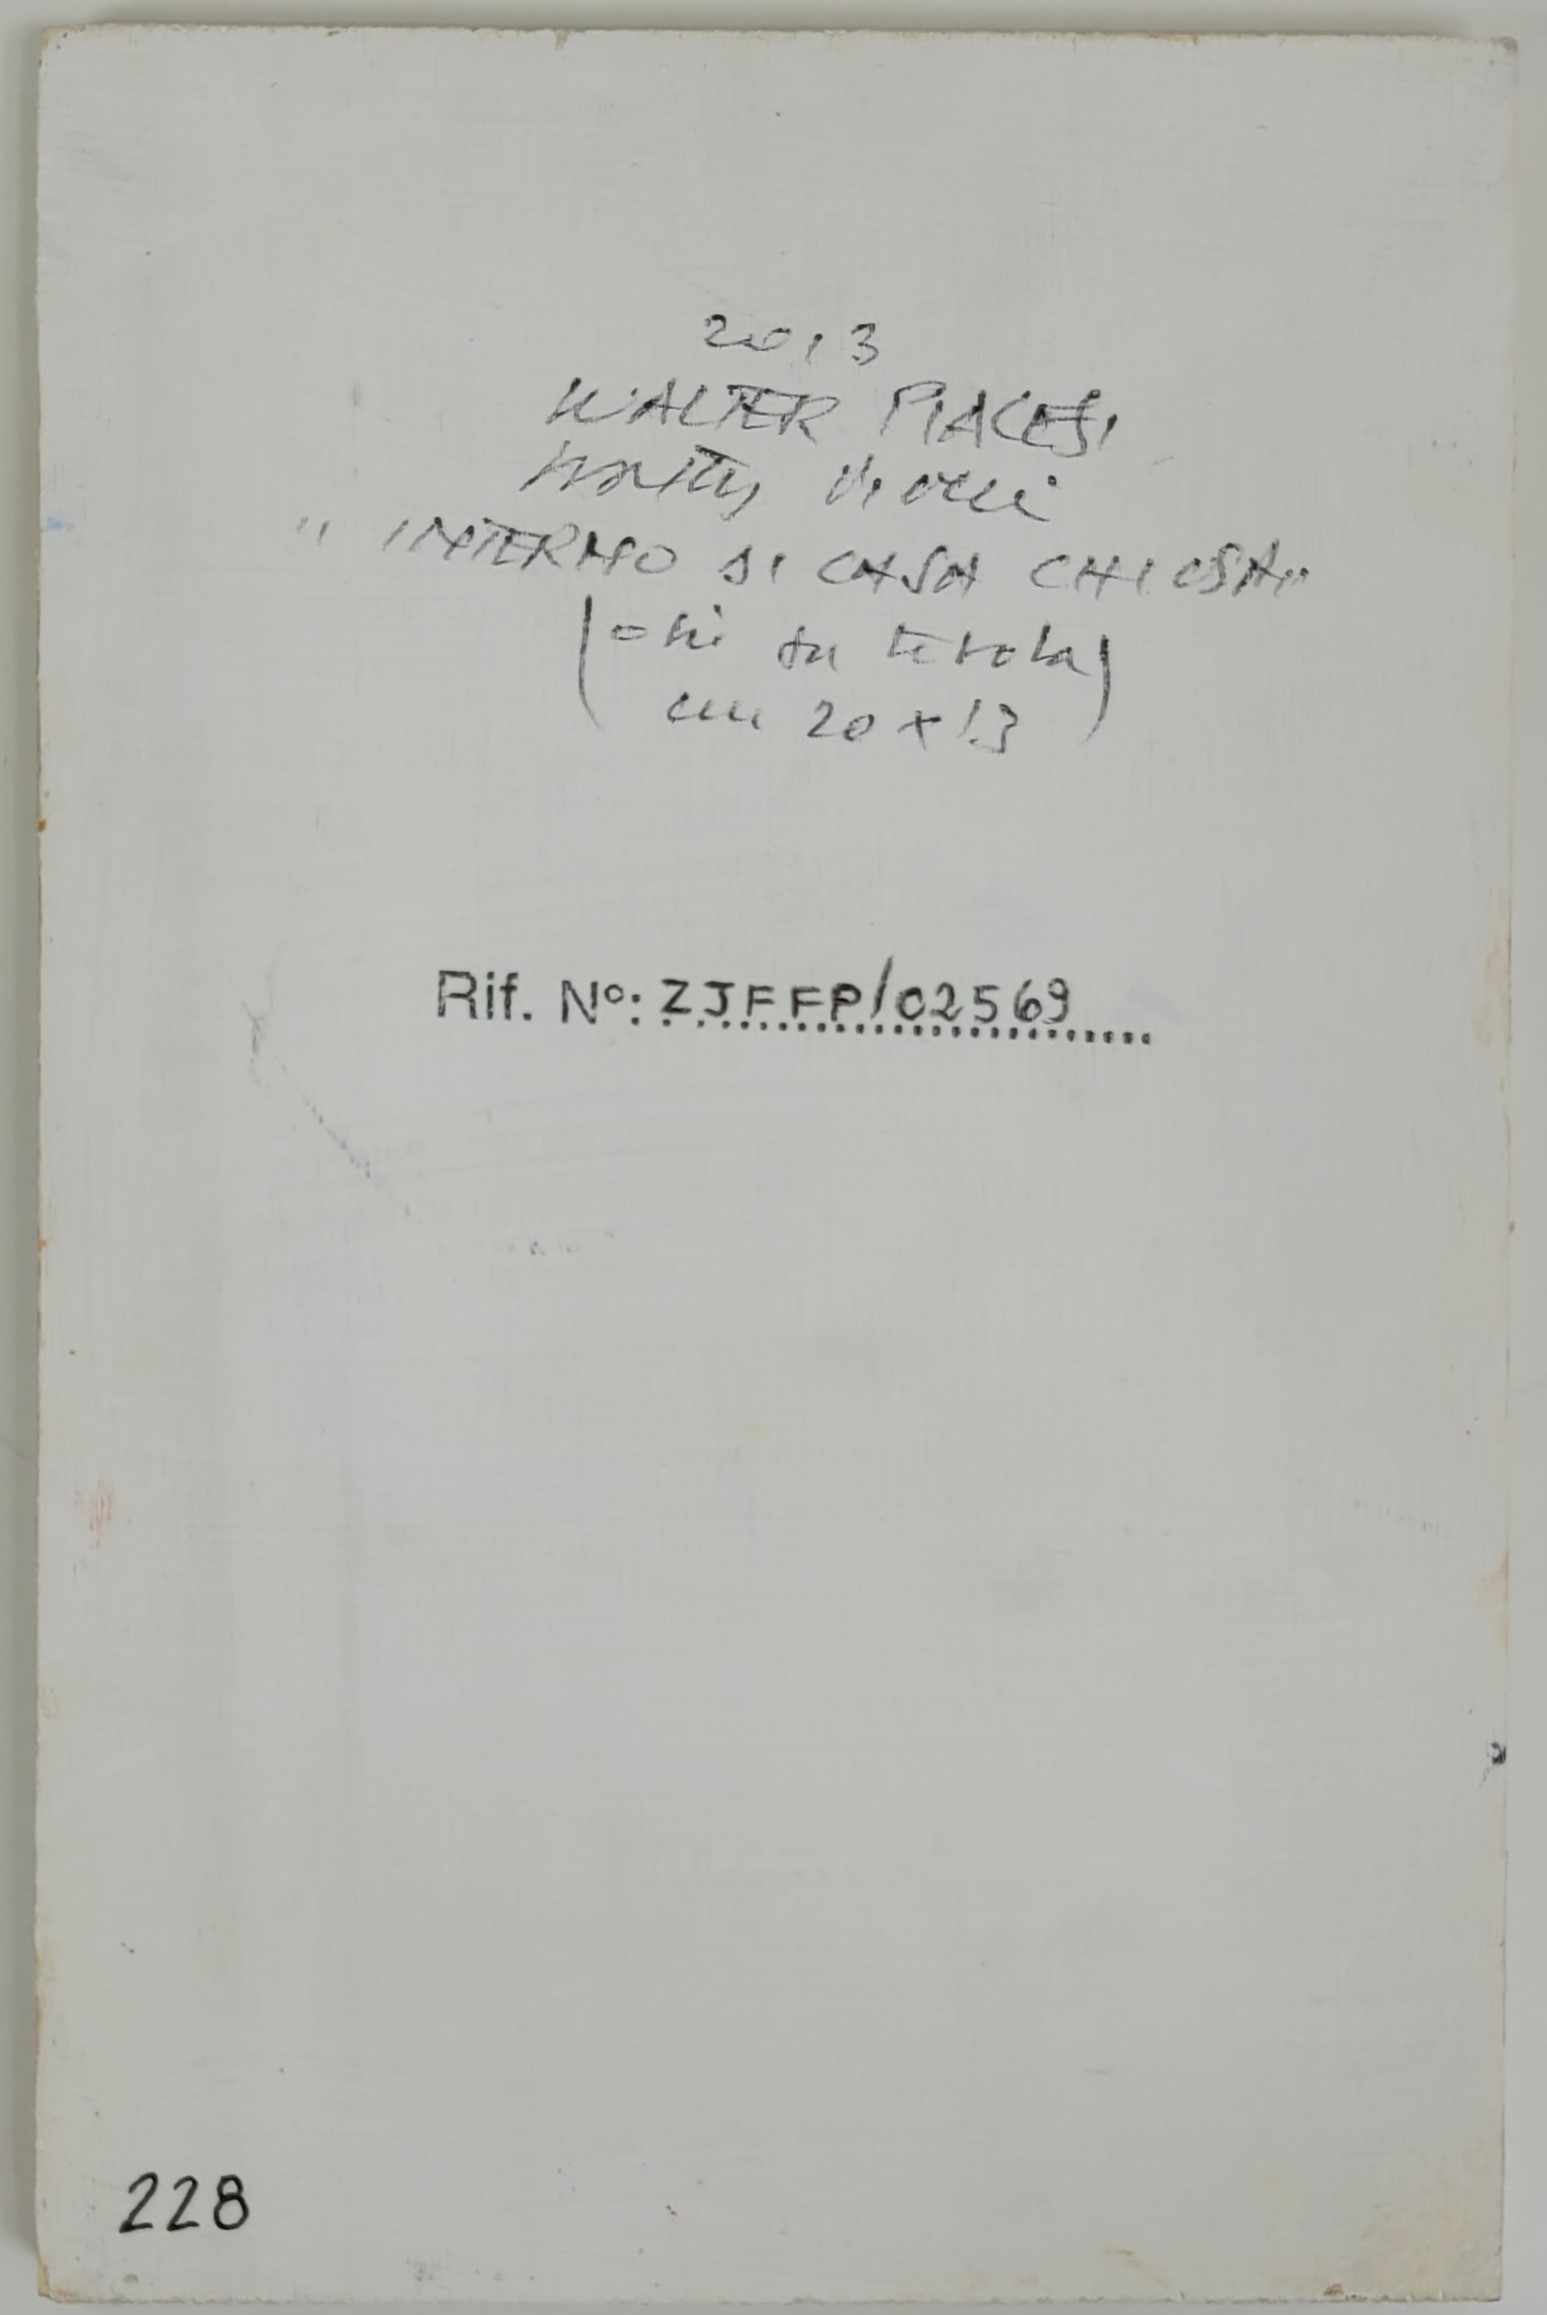 2013
WALTER PIACESI
" INTERNO DI CASA CHIUSA"
(olii su tavola)
cm 20 x 13
Rif. N°: ZJFFP/02569
228